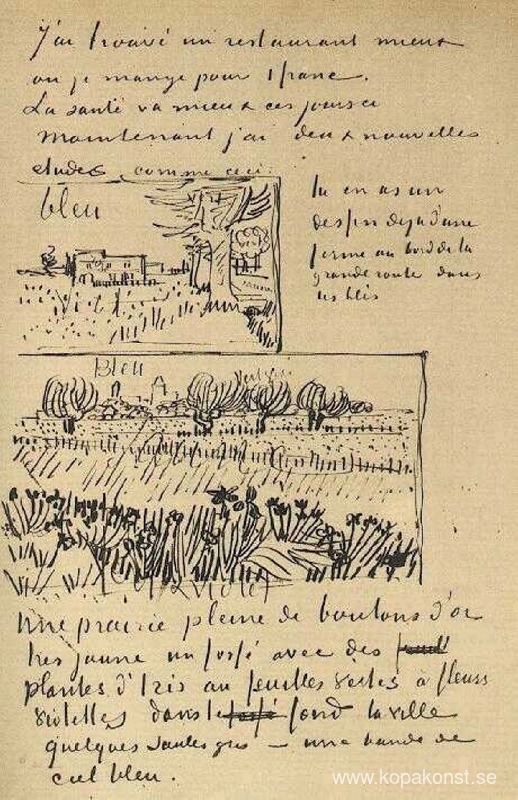 J'ai trouvé un restaurant mieux
ou je mange pour 1 franc.
La santé va mieux ces jours ci
Maintenant j'ai deux nouvelles
etudes comme ceci:
bleu
tu en as un
dessin deja d'une
ferme au bord de la
grande route dans
les blés
Bleu
Une prairie pleine de boutons d'or
tres jaune un fossé avec des
plantes d'Iris au feuilles vertes à fleurs
violettes dans le fond la ville
quelques saules gris – une bande de
ciel bleu.
www.kopakonst.se